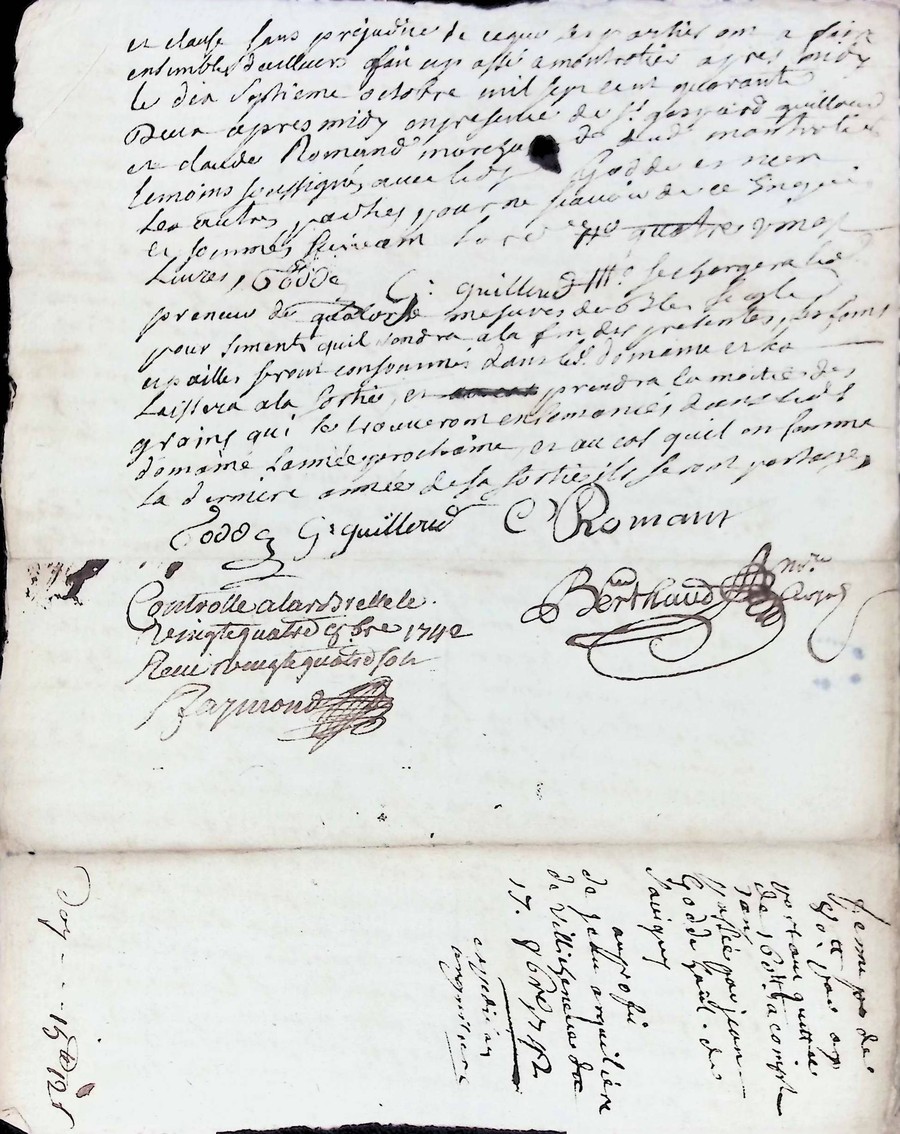 et clause sans préjudice de ceque les parties ont a faire
ensembles dailleurs fait et passé a montrotier apres midy
le dix septieme octobre mil sept cent quarante
Deux apres midy en presence de Sr gaspard guilloud
et claude Romand march de montrotier
temoins soussignés avec led Godde et non
Les autres parties pour ne scavoir de ce Enquis
et sommés suivant quatre vingt
Livres, Godde G. guilloud se chargera led
preneur de quatorze mesures de bled seigle
pour semence quil rendra a la fin des presentes, Les foins
et pailles seront consommés dans led domaine et les
Laissera a la sortie, et prendra la moitié des
grains qui se trouveront ensemancés dans ledit
domaine Lannée prochaine et au cas quil en semme
La derniere année de sa sortie ils seront partagés,
Godde G. guilloud C Romant
Controllé a larbrelle le Berthaud nore
Veingtquatre 8bre 1742
Receu veingtquatre sols
Raymond
Ferme de
portant quittce
de acompte
passée par jean
Godde de
Savigny
au profit
de jean arquiliere
de Villecheneve du
17. 8bre 1742
expedition